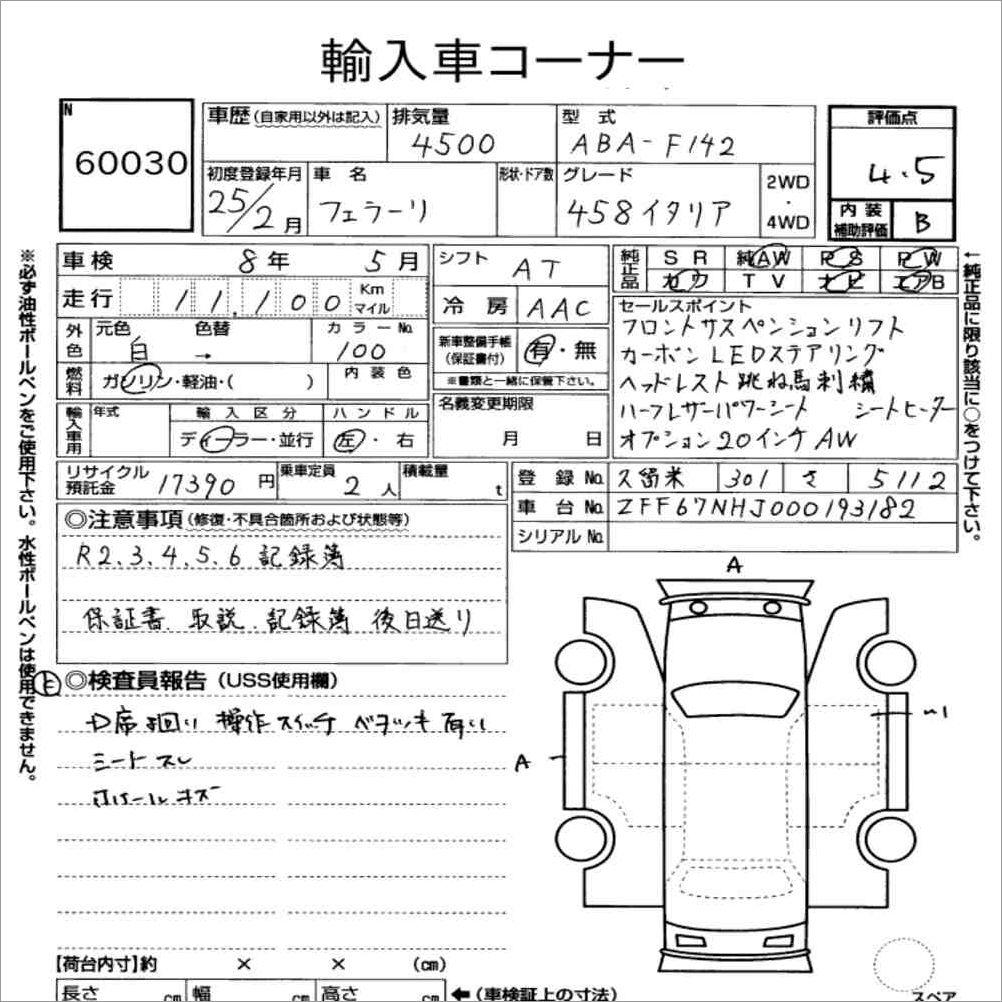 輸入車コーナー
N
60030
車歴 (自家用以外は記入)
排気量
4500
型式
ABA-F142
評価点
4.5
初度登録年月
25/2月
車名
フェラーリ
形状・ドア数
グレード
458イタリア
2WD
・
4WD
内装
補助評価
B
車検 8年 5月
シフト AT
純正品
SR 純AW PS PW
カワ TV ナビ エアB
走行 11,100 Km マイル
冷房 AAC
外色
元色 白
色替 →
カラーNo. 100
新車整備手帳
(保証書付)
有・無
※書類と一緒に保管下さい。
燃料
ガソリン・軽油・( )
内装色
輸入車用
年式
輸入区分
ディーラー・並行
ハンドル
左・右
名義変更期限
月 日
セールスポイント
フロントサスペンションリフト
カーボンLEDステアリング
ヘッドレスト跳ね馬刺繍
ハーフレザーパワーシート シートヒーター
オプション20インチAW
リサイクル
預託金
17390円
乗車定員 2人
積載量 t
登録No. 久留米 301 さ 5112
車台No. ZFF67NHJ000193182
シリアルNo.
◎注意事項 (修復・不具合箇所および状態等)
R2、3、4、5、6 記録簿
保証書 取説 記録簿 後日送り
◎検査員報告 (USS使用欄)
操作スイッチ ベタツキ
シートスレ
A
A
【荷台内寸】約 × × (cm)
長さ cm 幅 cm 高さ cm ←(車検証上の寸法)
スペア
※必ず油性ボールペンをご使用下さい。水性ボールペンは使用できません。
←純正品に限り該当に○をつけて下さい。